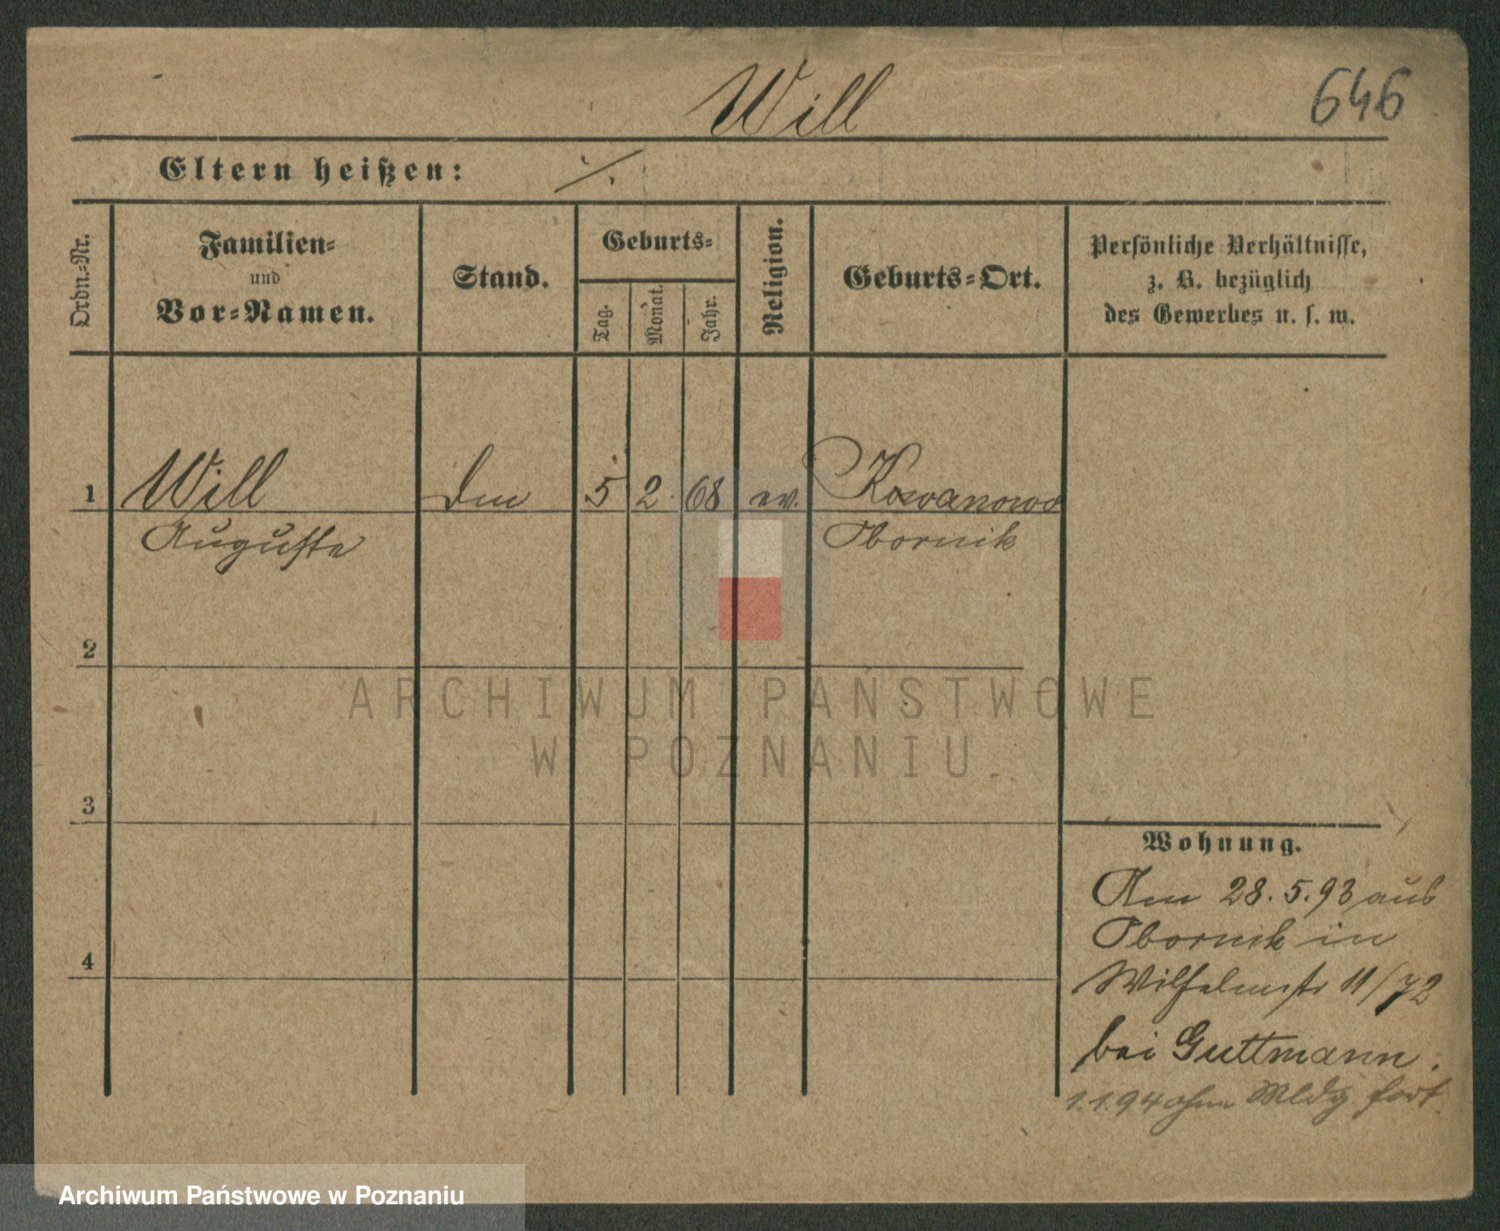 Will
646
Eltern heißen: ·/.
Ordn.-Nr.
Familien-
und
Vor-Namen.
Stand.
Geburts-
Tag.
Monat.
Jahr.
Religion.
Geburts-Ort.
Persönliche Verhältnisse,
z. B. bezüglich
des Gewerbes u. s. w.
1 Will 5 2. 68 ev. Kowanowo
Auguste Obornik
2
3
4
ARCHIWUM PAŃSTWOWE
W POZNANIU
Wohnung.
Am 28.5.93 aus
Obornik in
Wilhelmstr 11/72
bei Guttmann.
1.1.94 ohne Mldg fort.
Archiwum Państwowe w Poznaniu